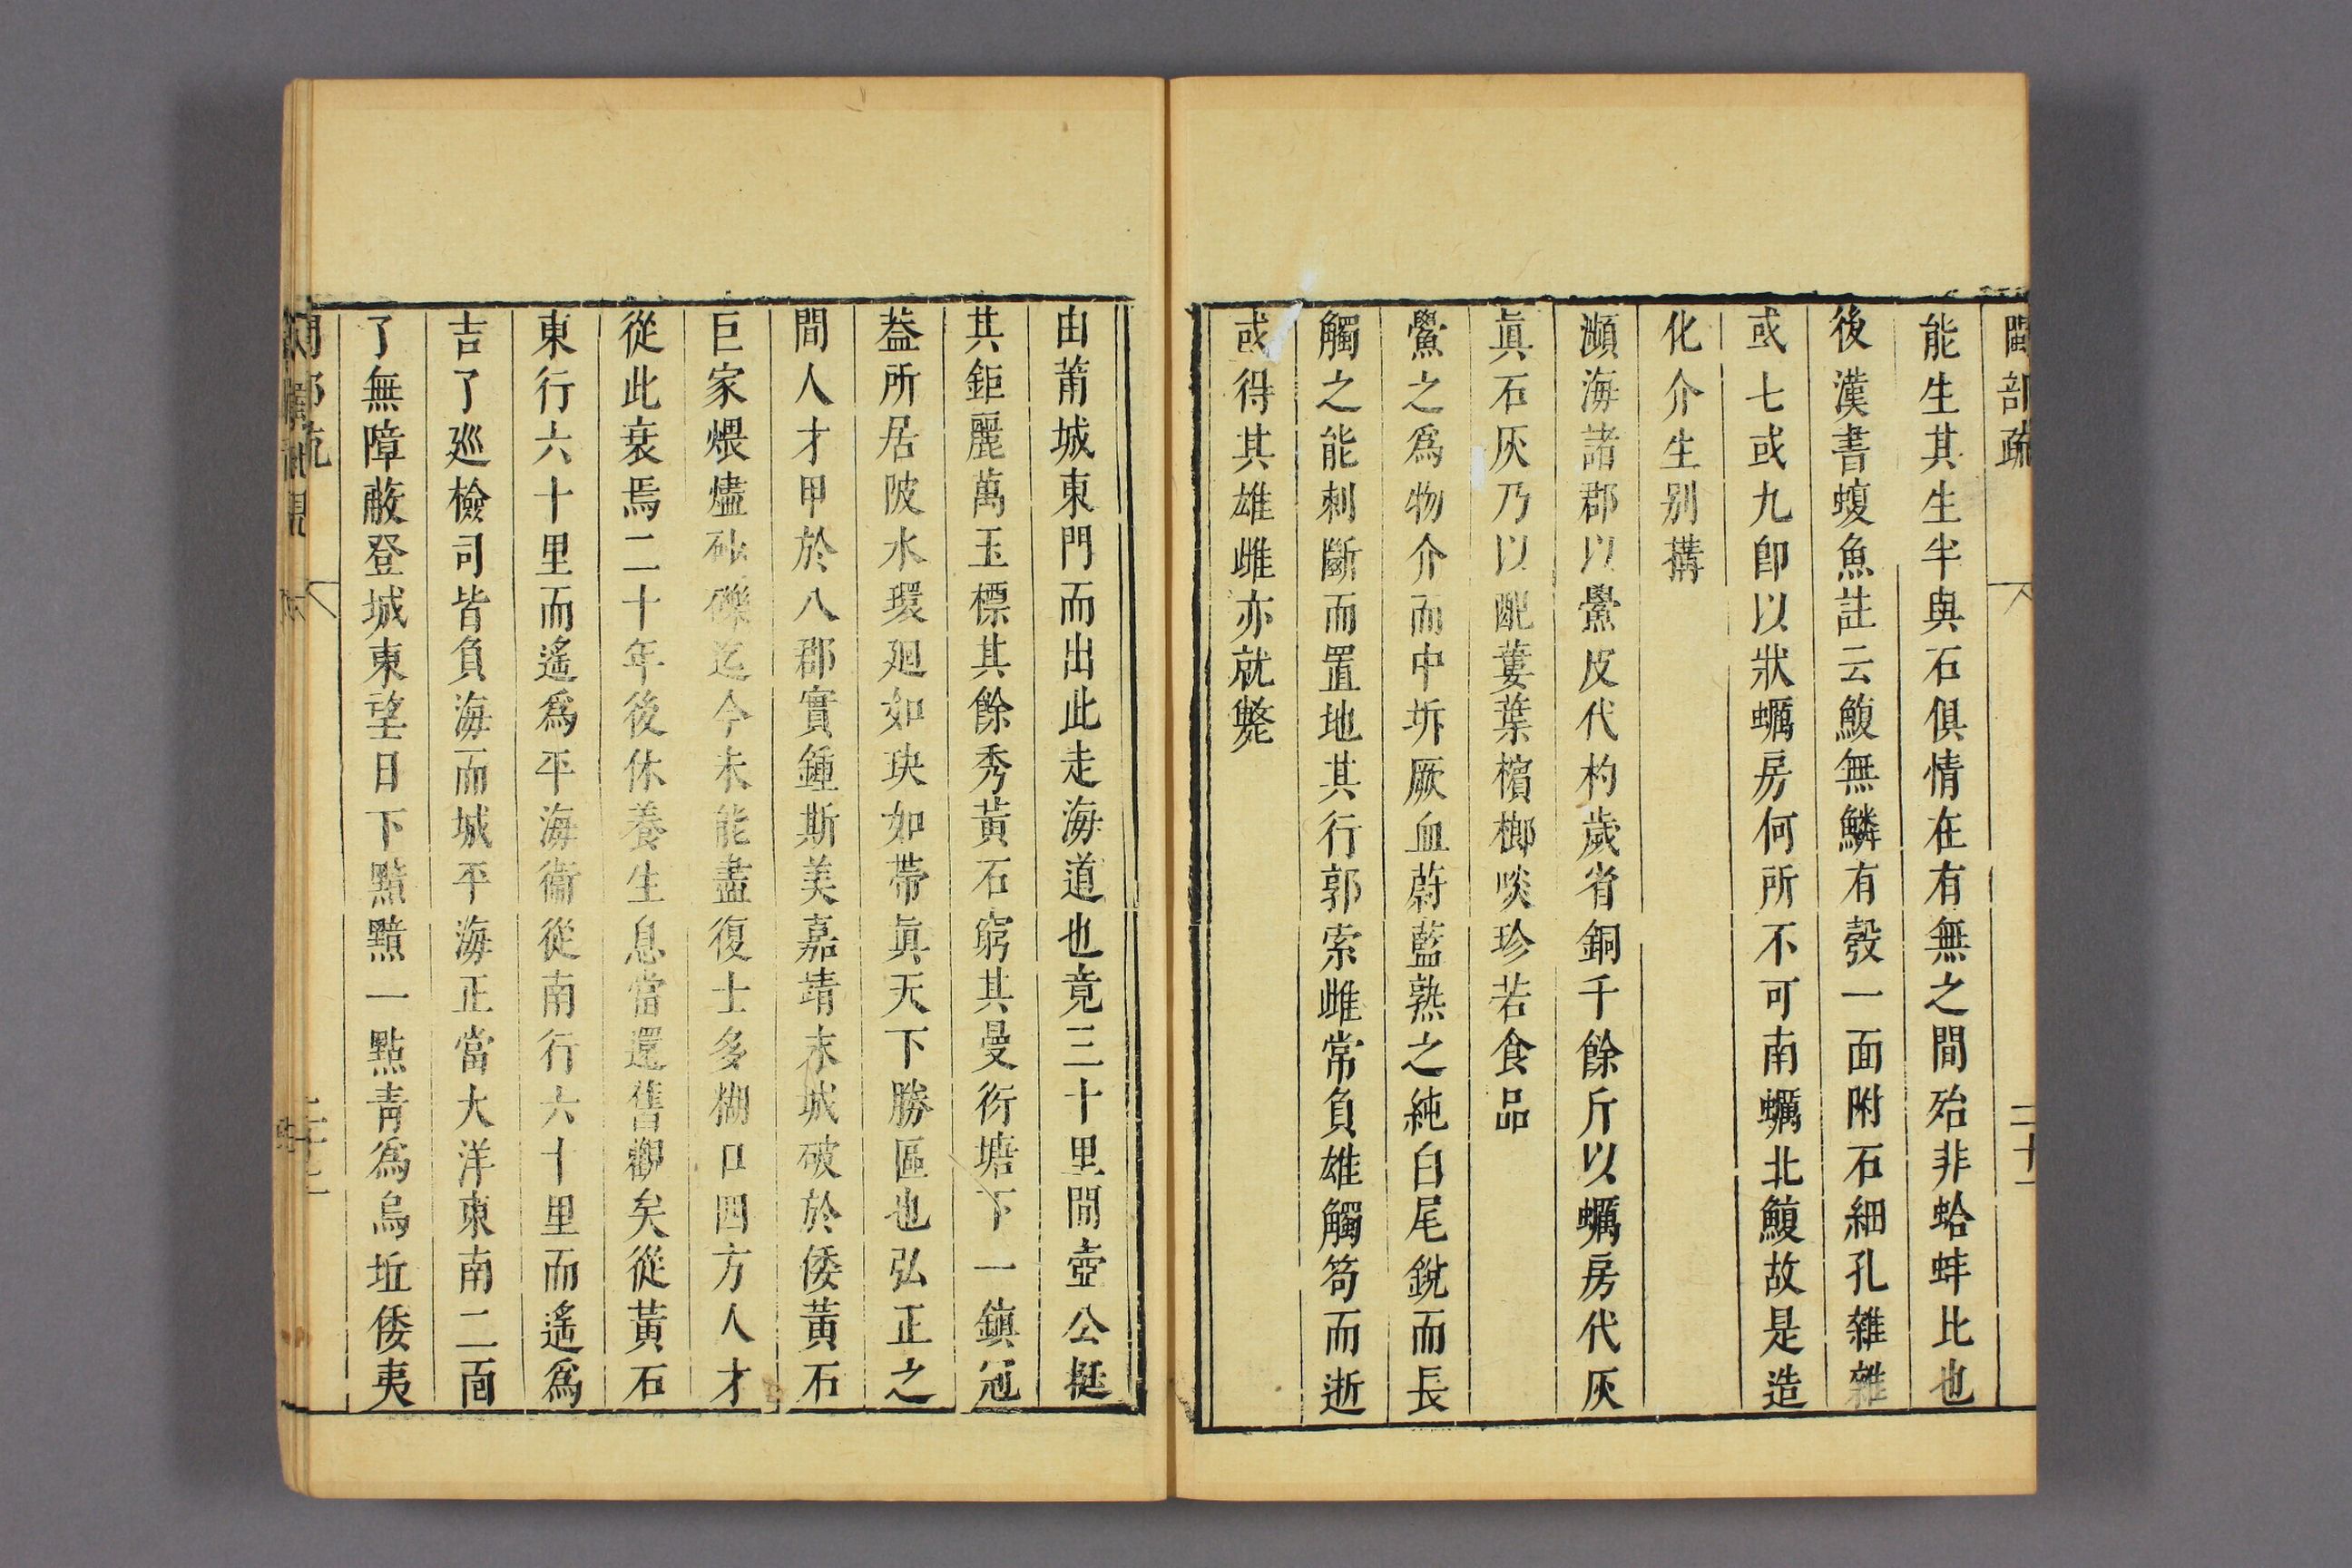 閩部疏
二十一
能生其生半與石俱情在有無之間殆非蛤蚌比也
後漢書蝮魚註云鰒無鱗有殼一面附石細孔雜雜
或七或九卽以狀蠣房何所不可南蠣北鰒故是造
化介生别搆
瀕海諸郡以鱟皮代杓歲省銅千餘斤以蠣房代灰
眞石灰乃以配蔞葉檳榔啖珍若食品
鱟之爲物介而中坼厥血蔚藍熟之純白尾銳而長
觸之能刺斷而置地其行郭索雌常負雄觸笱而逝
或得其雄雌亦就斃
由莆城東門而出此走海道也竟三十里間壺公挺
其鉅麗萬玉標其餘秀黃石窮其曼衍塘下一鎮冠
葢所居陂水環廻如玦如帶眞天下勝區也弘正之
間人才甲於八郡實鍾斯美嘉靖末城破於倭黃石
巨家煨燼砾礫迄今未能盡復士多糊口四方人才
從此衰焉二十年後休養生息當還舊觀矣從黃石
東行六十里而遙爲平海衞從南行六十里而遙爲
吉了廵檢司皆負海而城平海正當大洋東南二面
了無障蔽登城東望日下黯黯一點青爲烏坵倭夷